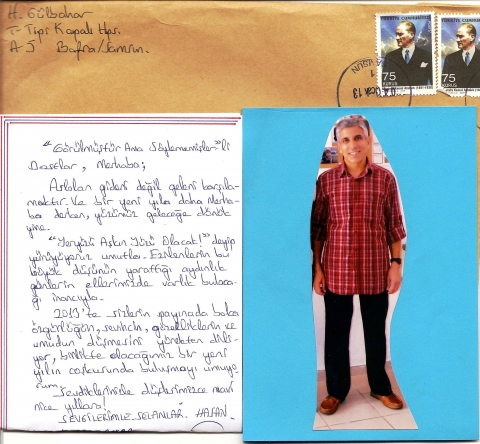 H. Gülbahar
T Tipi Kapalı Hps.
A 5 Bafra/Samsun.
TÜRKİYE CUMHURİYETİ
75
KURUŞ
75
KURUŞ
SAMSUN
"Görülmüştür Ama Söylenmemişler"li
Dostlar, Merhaba;
Aslolan gideni değil geleni karşıla-
maktır. Ve bir yeni yıla daha Merha-
ba derken, yüzümüz geleceğe dönük
yine.
"Yeryüzü Aşkın Yüzü Olacak!" deyip
yürüyoruz umutla. Ezilenlerin bu
büyük düşünün yarattığı aydınlık
günlerin ellerimizde varlık bulaca-
ğı inancıyla.
2013'te sizlerin payınada bolca
özgürlüğün, sevincin, güzelliklerin ve
umudun düşmesini yürekten dili-
yor, birlikte olacağımız bir yeni
yılın coşkusunda buluşmayı umuyo-
rum.
Sevdiklerinizle düşlerinizce mavi
nice yıllara!
SEVGİLERİMLE SELAMLAR. HASAN